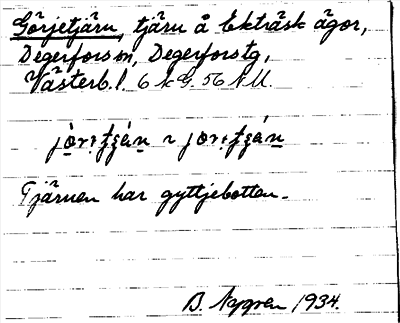 Görjetjärn, tjärn å Ekträsk ägor,
Degerfors sn, Degerfors tg,
Västerb. l. 6 k G. 56 N U.
Tjärnen har gyttjebotten.
B. Nygren 1934.